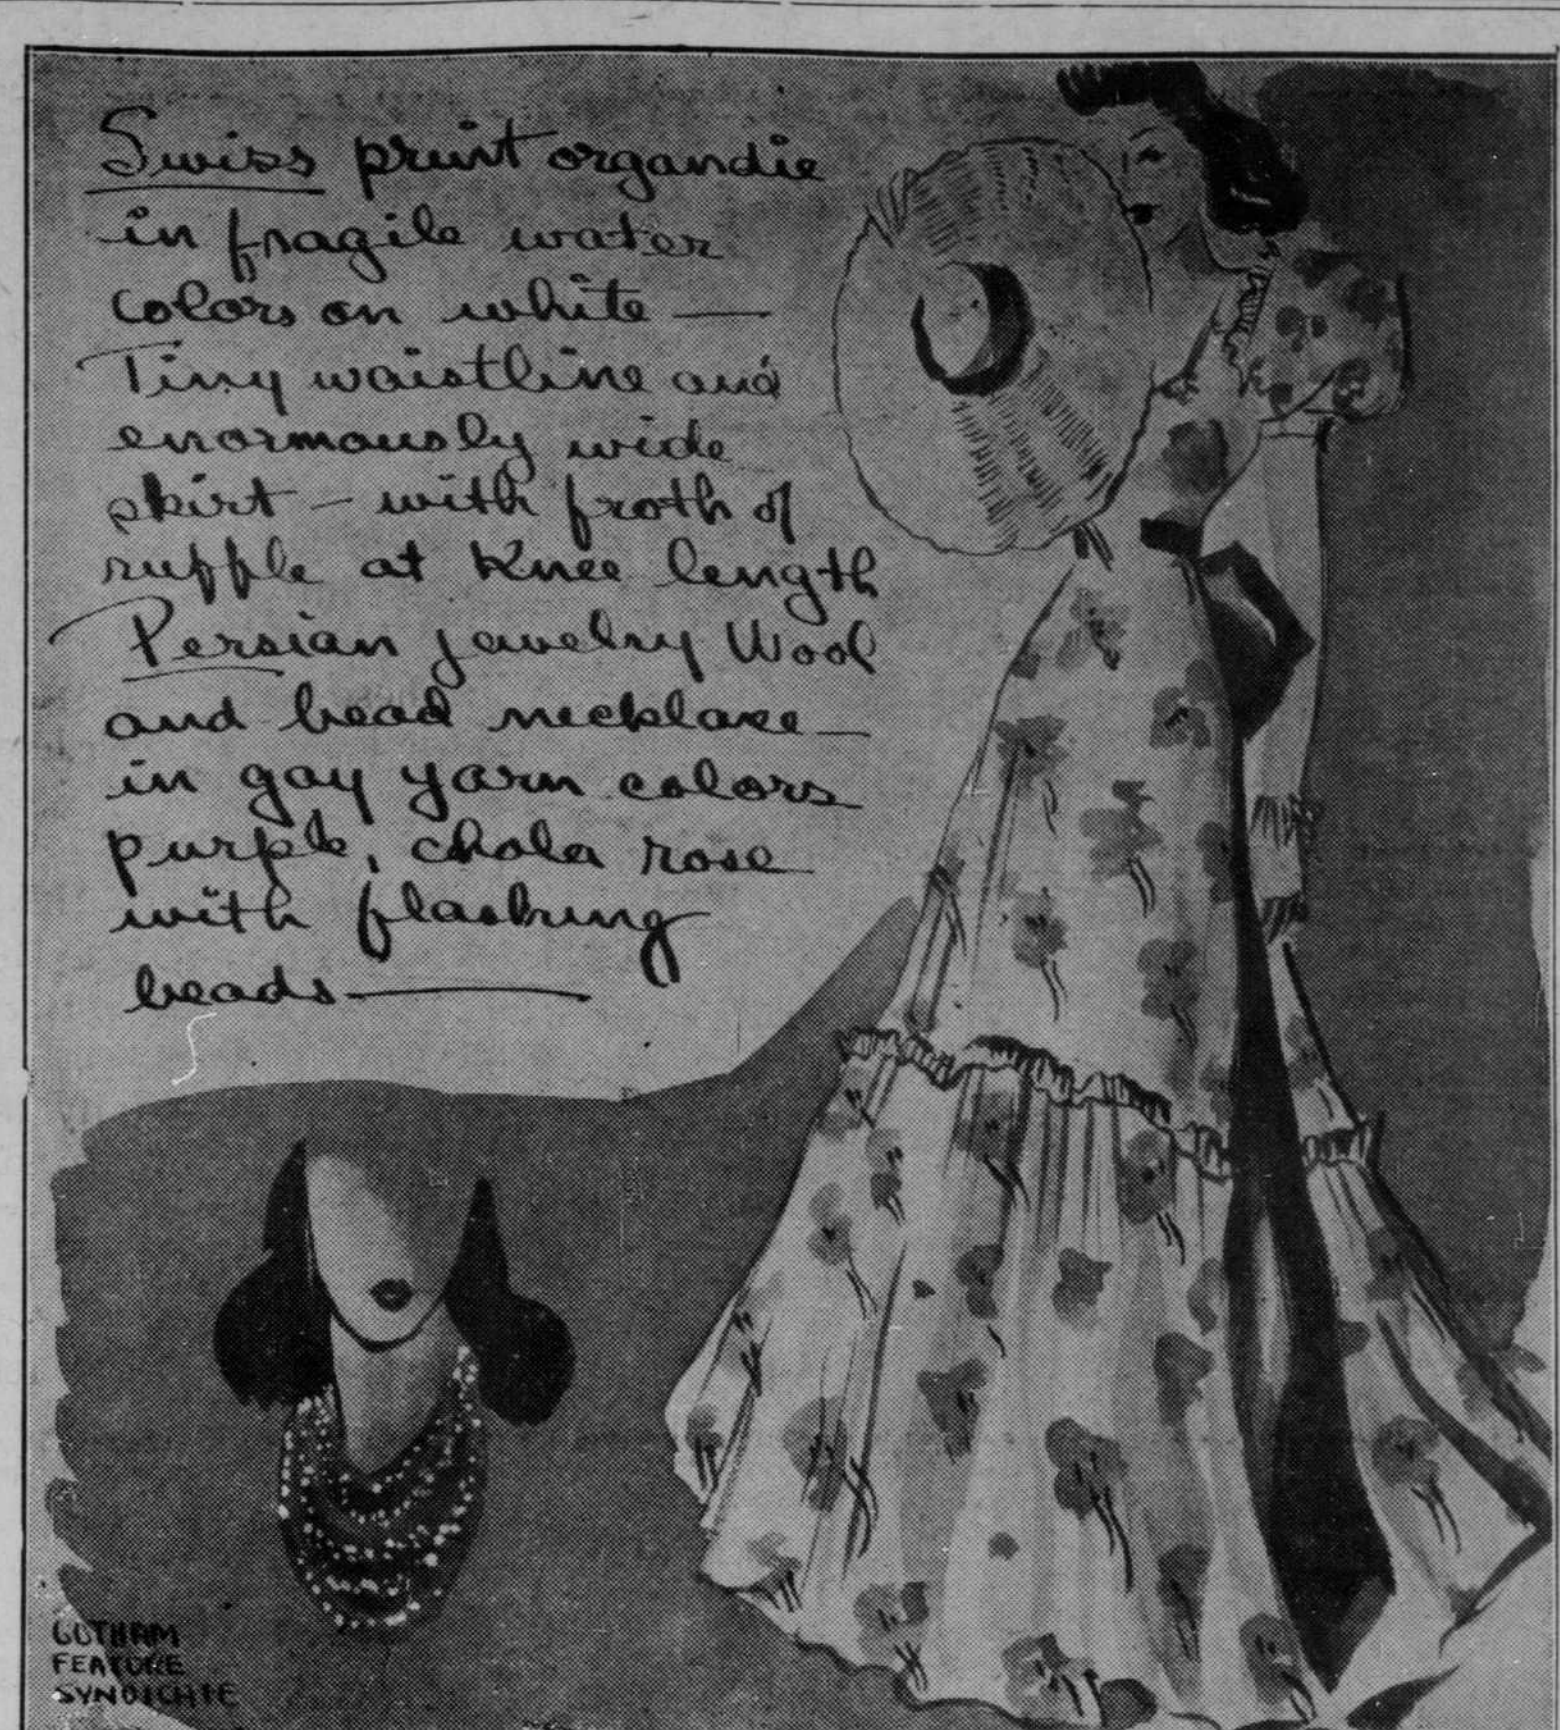 Swiss print organdie
in fragile water
colors on white —
Tiny waistline and
enormously wide
skirt - with froth of
ruffle at Knee length
Persian jewelry Wool
and bead necklace —
in gay yarn colors
purple, chola rose
with flashing
beads —
GOTHAM
FEATURE
SYNDICATE